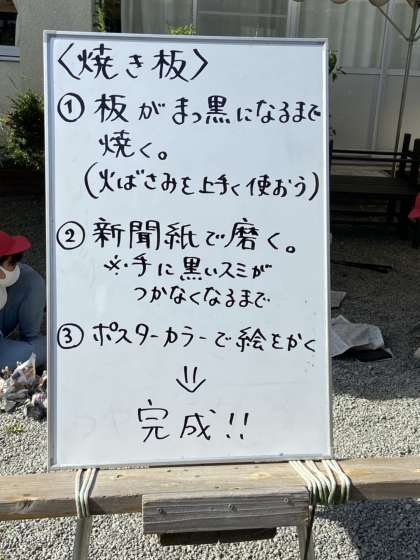 〈焼き板〉
① 板がまっ黒になるまで
焼く。
(火ばさみを上手く使おう)
② 新聞紙で磨く。
※手に黒いスミが
つかなくなるまで
③ ポスターカラーで絵をかく
⇓
完成!!